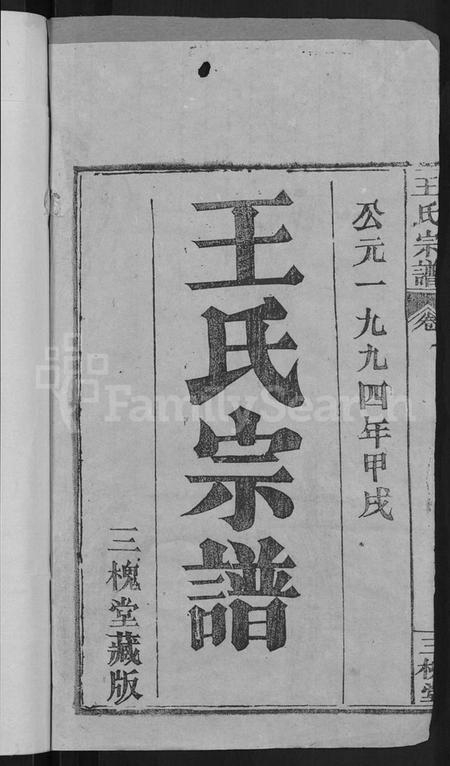 公元一九九四年甲戌
王氏宗譜
三槐堂藏版
王氏宗譜
卷
三槐堂
FamilySearch